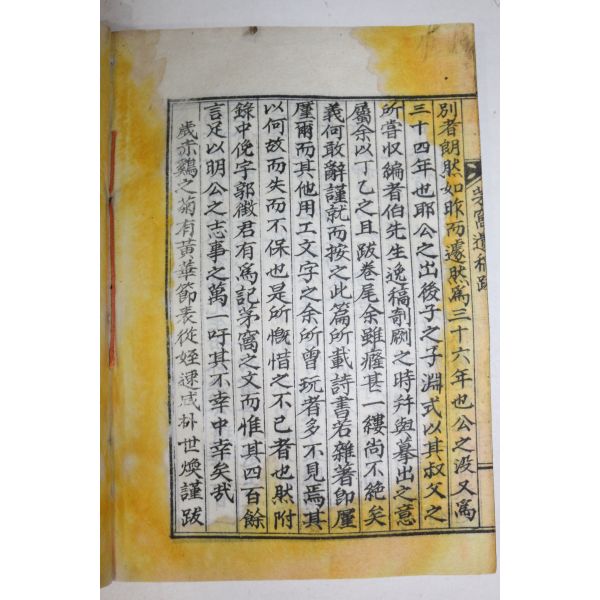 別者朗然如昨而遽然爲三十六年也公之沒又爲
三十四年也耶公之出後子之子淵式以其叔父之
所嘗收編者伯先生逸稿剞劂之時幷與摹出之意
屬余以丁乙之且跋卷尾余雖癃甚一縷尚不絶矣
義何敢辭謹就而按之此篇所載詩書若雜著卽厪
厪爾而其他用工文字之余所曾玩者多不見焉其
以何故而失而不保也是所慨惜之不已者也然附
錄中俛宇郭徵君有爲記茅窩之文而惟其四百餘
言足以明公之志事之萬一吁其不幸中幸矣哉
歲赤鷄之菊有黃華節表從姪逮成朴世煥謹跋
窩遺稿跋